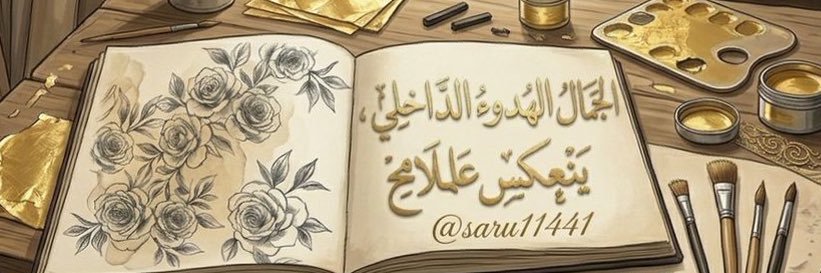 الجَمَالُ الهُدوءُ الدَّاخِلِي،
يَنْعِكسِ عَلملَامِحْ
@saru11441